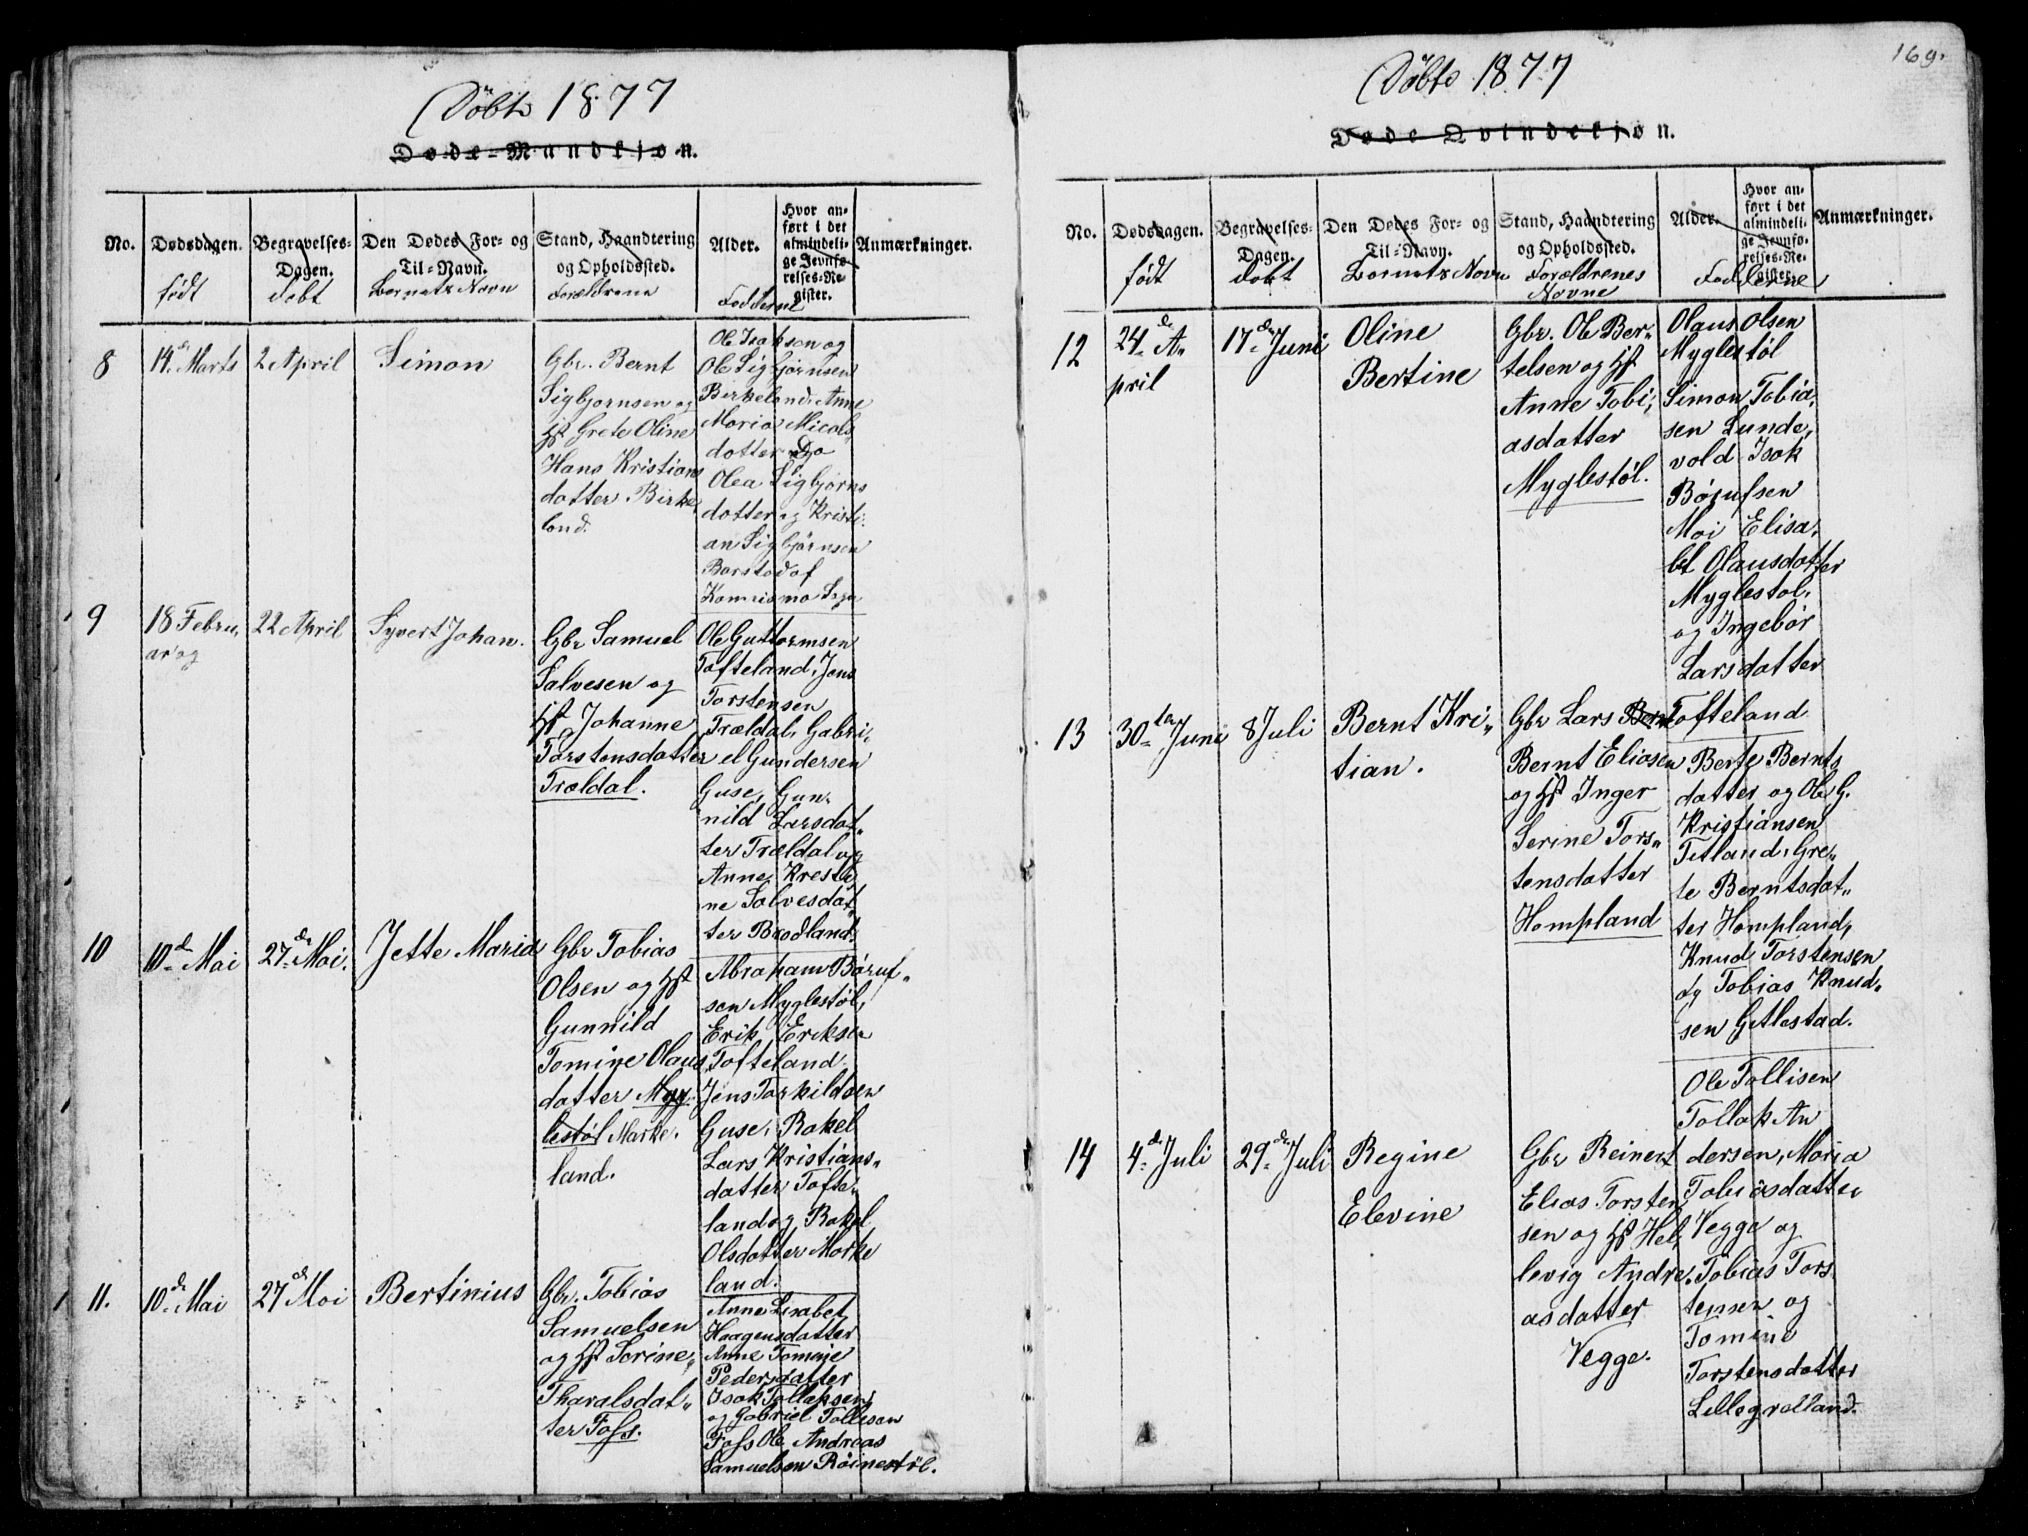 Døbte 1877
Døde-Mandkjøn.
No.
Dødsdagen.
født
Begravelses-
Dagen.
døbt
Den Dødes For- og
Til-Navn.
Barnets Navn
Stand, Haandtering
og Opholdssted.
Forældrene
Alder.
Fadderne
Hvor an-
ført i det
almindeli-
ge Jevnfø-
relses-Re-
gister.
Anmærkninger.
8
14. Marts
2 April
Simon
Gbr. Bernt
Sigbjørnsen og
Hst Grete Oline
Hans Kristians
datter Birke
land.
Ole Isaksen og
Ole Sigbjørnsen
Birkeland, Anne
Maria Nicols
dotter
Olea Sigbjørns
dotter og Kristi-
an Sigbjørnsen
Barstad af
9
18 Febru,
ar og
22 April
Syvert Johan.
Gbr Samuel
Salvesen og
Hst Johanne
Torstensdatter
Trældal.
Ole Guttormsen
Tofteland, Jens
Torstensen
Trældal, Gabri-
el Gundersen
Guse, Gun-
nild Larsdat„
ter Trældal og
Anne Kresti,
ne Salvesdat„
ter Brodland.
10
10de Mai
27de Mai.
Jette Maria
Gbr Tobias
Olsen og Hst
Gunnild
Tomine Olaus
datter Myg-
lestøl Marke.
land.
Abraham Børuf„
sen Myglestøl,
Erik Eriksen
Tofteland
Jens Torkildsen
Guse, Rakel
Lars Kristians„
datter Tofte„
land og Rakel
Olsdatter Marke
land.
11.
10de Mai
27de Mai
Bertinius
Gbr. Tobias
Samuelsen
og Hst Serine„
Tharalsdat„
ter Foss.
Anne Lisabet
Haagensdatter
Anne Tomine
Pedersdatter
Isak Tollaksen,
og Gabriel Tollisen
Foss Ole Andreas
Samuelsen Röinestöl.
169.
Døbte 1877
Døde Qvindekjøn.
No.
Dødsdagen.
født
Begravelses-
Dagen.
døbt
Den Dødes For- og
Til-Navn.
Barnets Navn
Stand, Haandtering
og Opholdssted.
Forældrenes
Navne
Alder.
Fadderne
Hvor an-
ført i det
almindeli-
ge Jevnfø-
relses-Re-
gister.
Anmærkninger.
12
24de A„
pril
17de Juni
Oline
Bertine
Gbr. Ole Ber-
telsen og Hst
Anne Tobi,
asdatter
Myglestøl.
Olaus Olsen
Myglestøl
Simon Tobia,
sen Lunde,
vold Isak
Børufsen
Moi Elisa,
bet Olausdatter
Myglestøl,
og Ingebor
Larsdatter
Tofteland
13
30te Juni
8 Juli
Bernt Kri„
tian.
Gbr Lars Bernt
Bernt Eliasen
og Hst Inger
Serine Tors„
tensdatter
Hompland
Berte Bernts,
datter og Ole G.
Kristiansen
Titland, Gre„
te Berntsdat„
ter Hompland,
Knud Torstensen
og Tobias Knud„
sen Gitlestad.
14
4de Juli
29de Juli
Regine
Elevine
Gbr Reinert
Elias Torsten
sen og Hst Hel,
levig Andre,
asdatter
Vegge.
Ole Tollisen
Tollak An
dersen, Maria
Tobiasdatter
Vegge og
Tobias Tors
tensen og
Tomine
Torstensdatter
Lillegrelland.